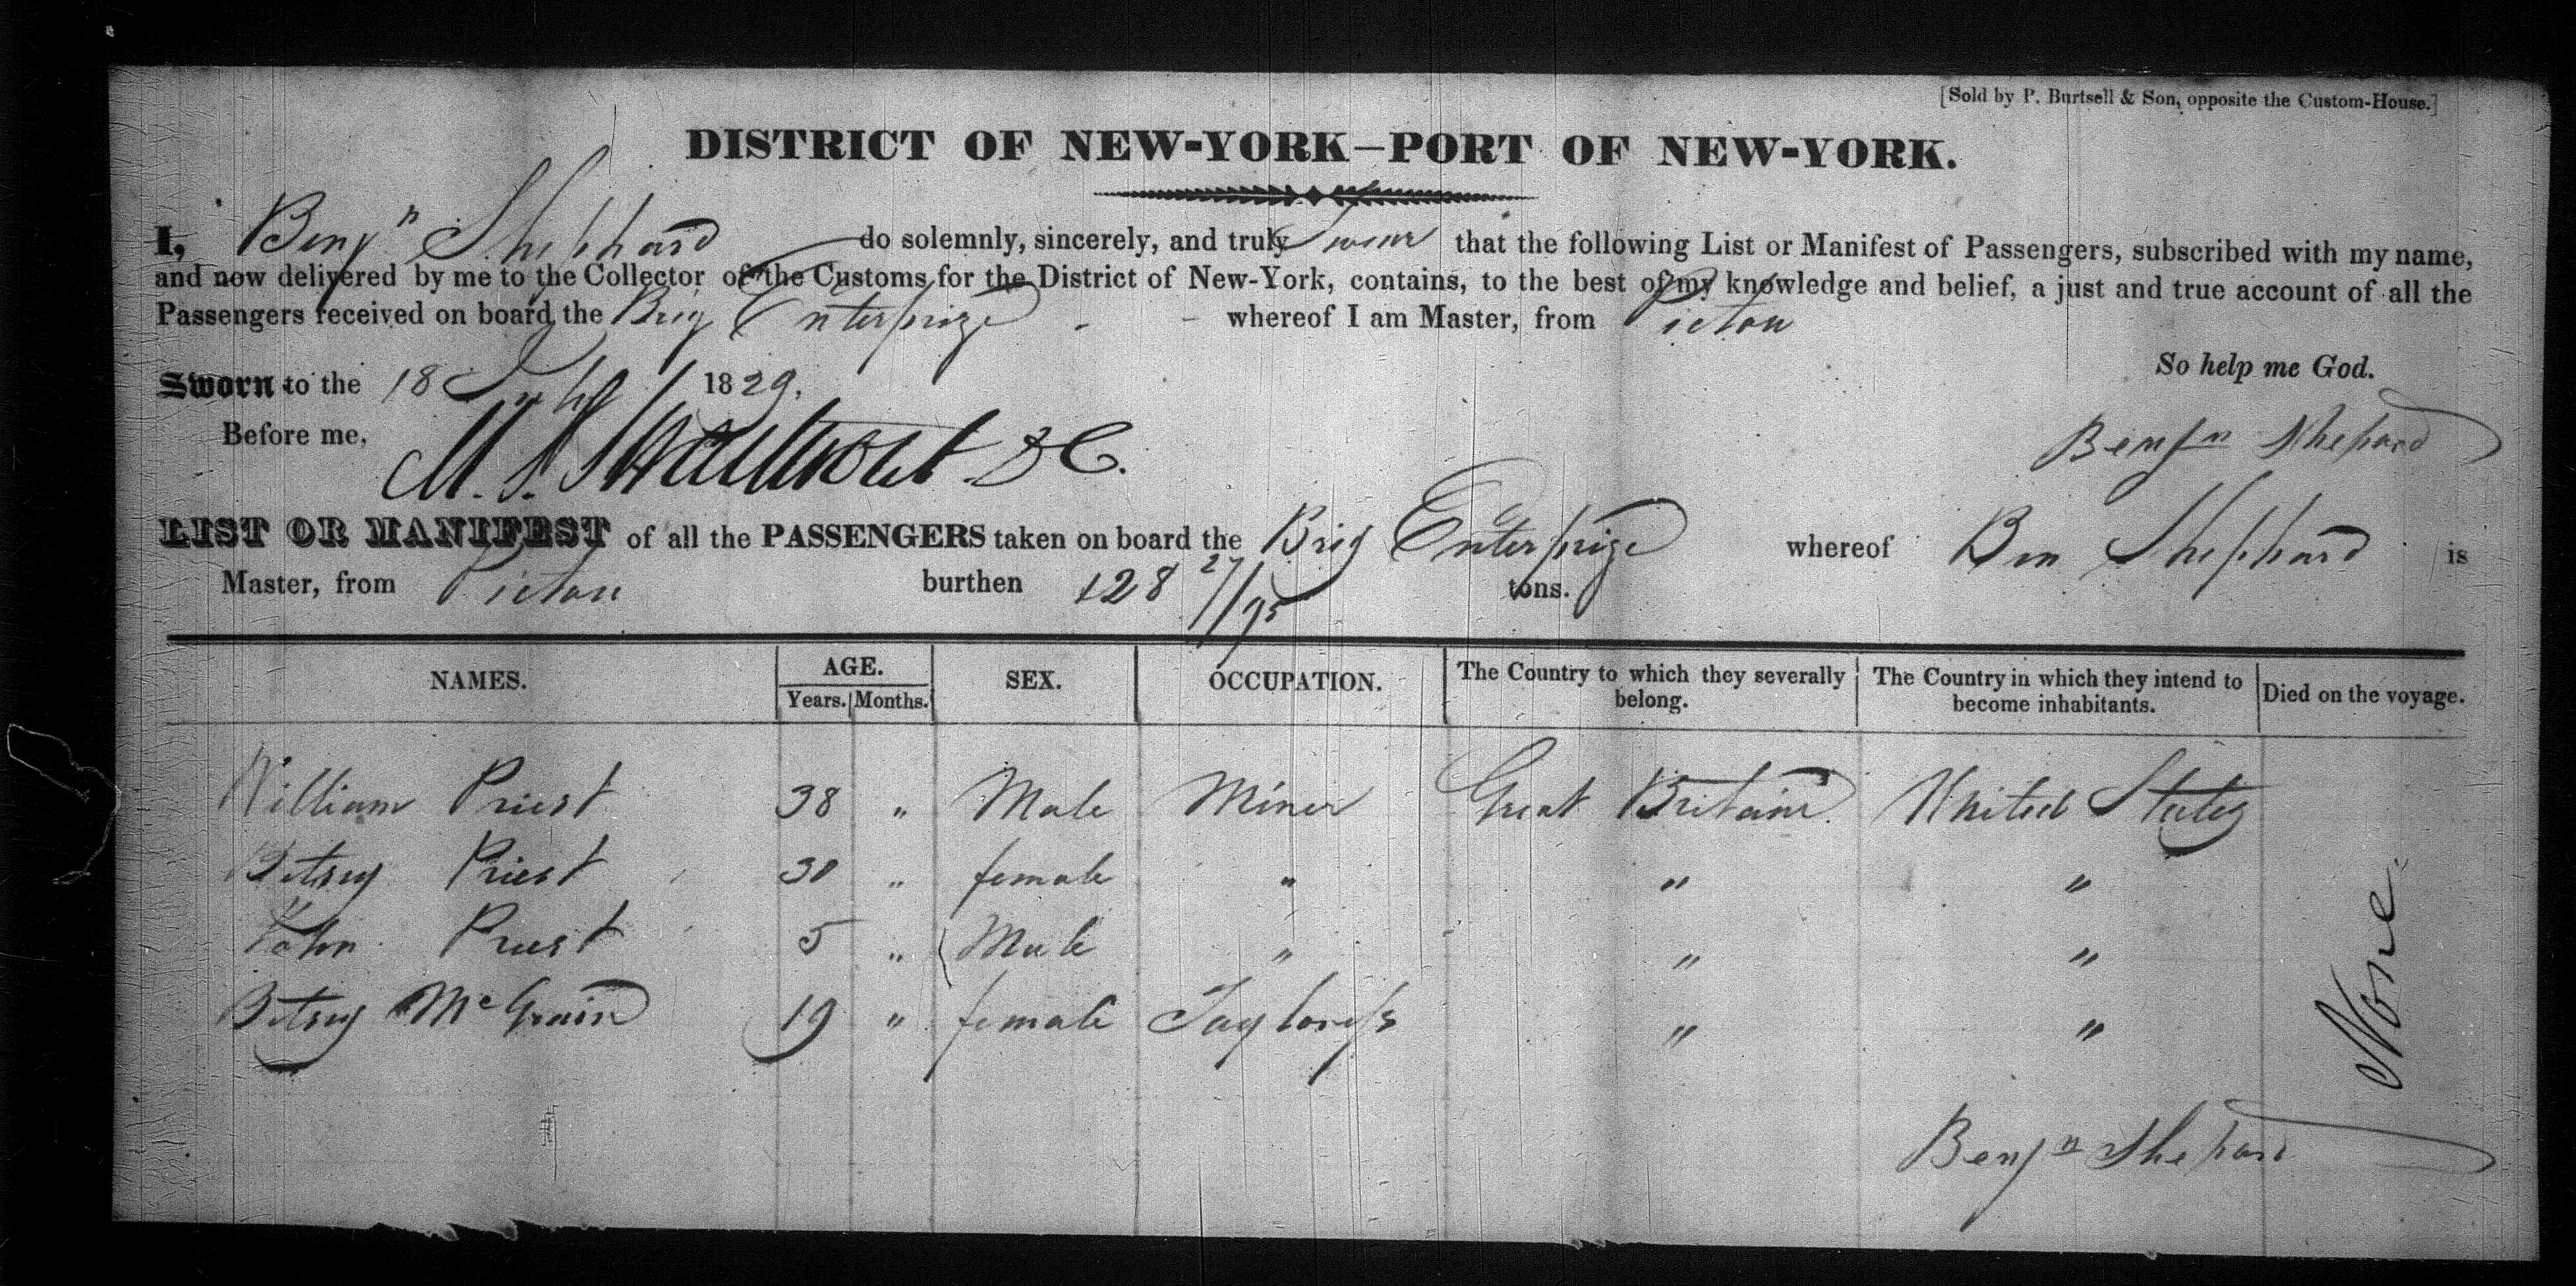 [Sold by P. Burtsell & Son, opposite the Custom-House.]
DISTRICT OF NEW-YORK—PORT OF NEW-YORK.
I, Benjn Shephard do solemnly, sincerely, and truly Swear that the following List or Manifest of Passengers, subscribed with my name,
and now delivered by me to the Collector of the Customs for the District of New-York, contains, to the best of my knowledge and belief, a just and true account of all the
Passengers received on board the Brig Enterprize whereof I am Master, from Picton
So help me God.
Sworn to the 18 1829.
Before me, M. Swartwout D C.
Benjn Shepard
LIST OR MANIFEST of all the PASSENGERS taken on board the Brig Enterprize whereof Ben Shephard is
Master, from Picton burthen 128 27/95 tons.
NAMES. AGE. SEX. OCCUPATION. The Country to which they severally belong. The Country in which they intend to become inhabitants. Died on the voyage.
Years. Months.
William Priest 38 " Male Miner Great Britain United States
Betsey Priest 30 " female " " "
John Priest 5 " Male " " "
Betsey McGrain 19 " female Tayloress " "
None
Benjn Shepard